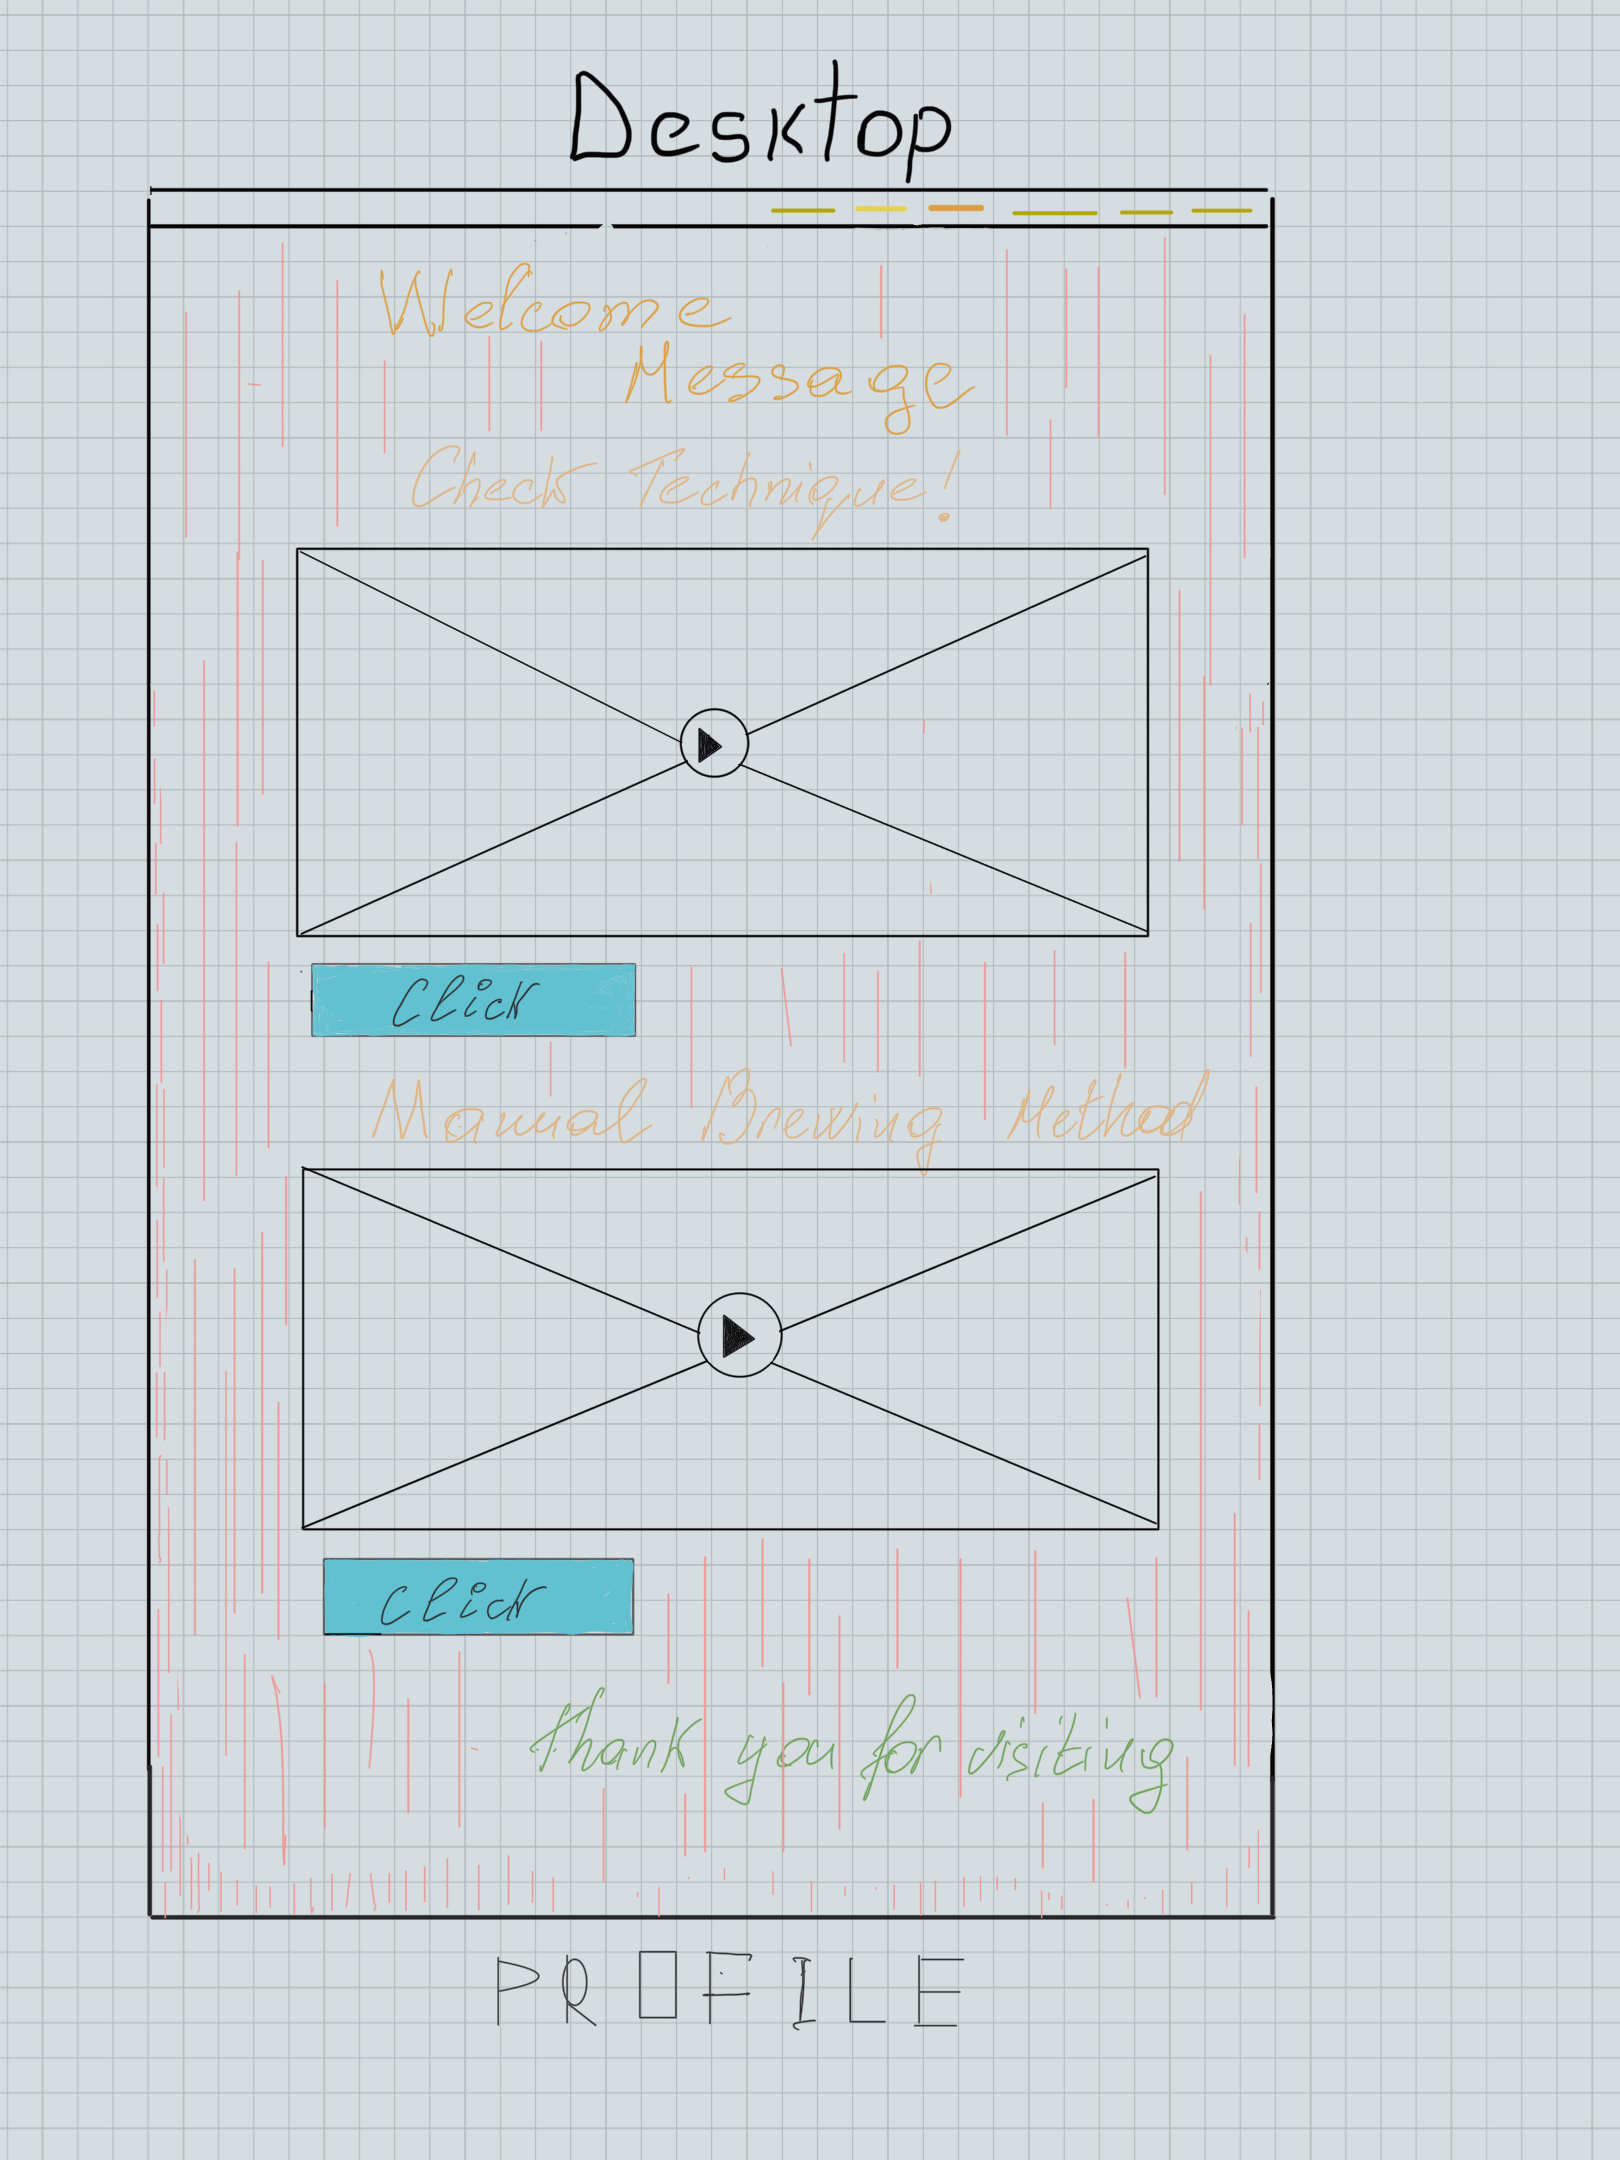 Desktop
Welcome
Message
Check Technique!
Click
Manual Brewing Method
Click
Thank you for visiting
PROFILE